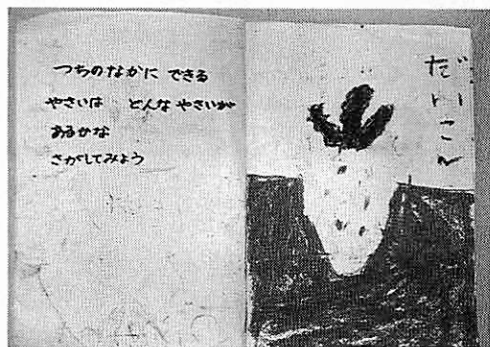 つちのなかに できる
やさいは どんな やさいが
あるかな
さがしてみよう
だいこん